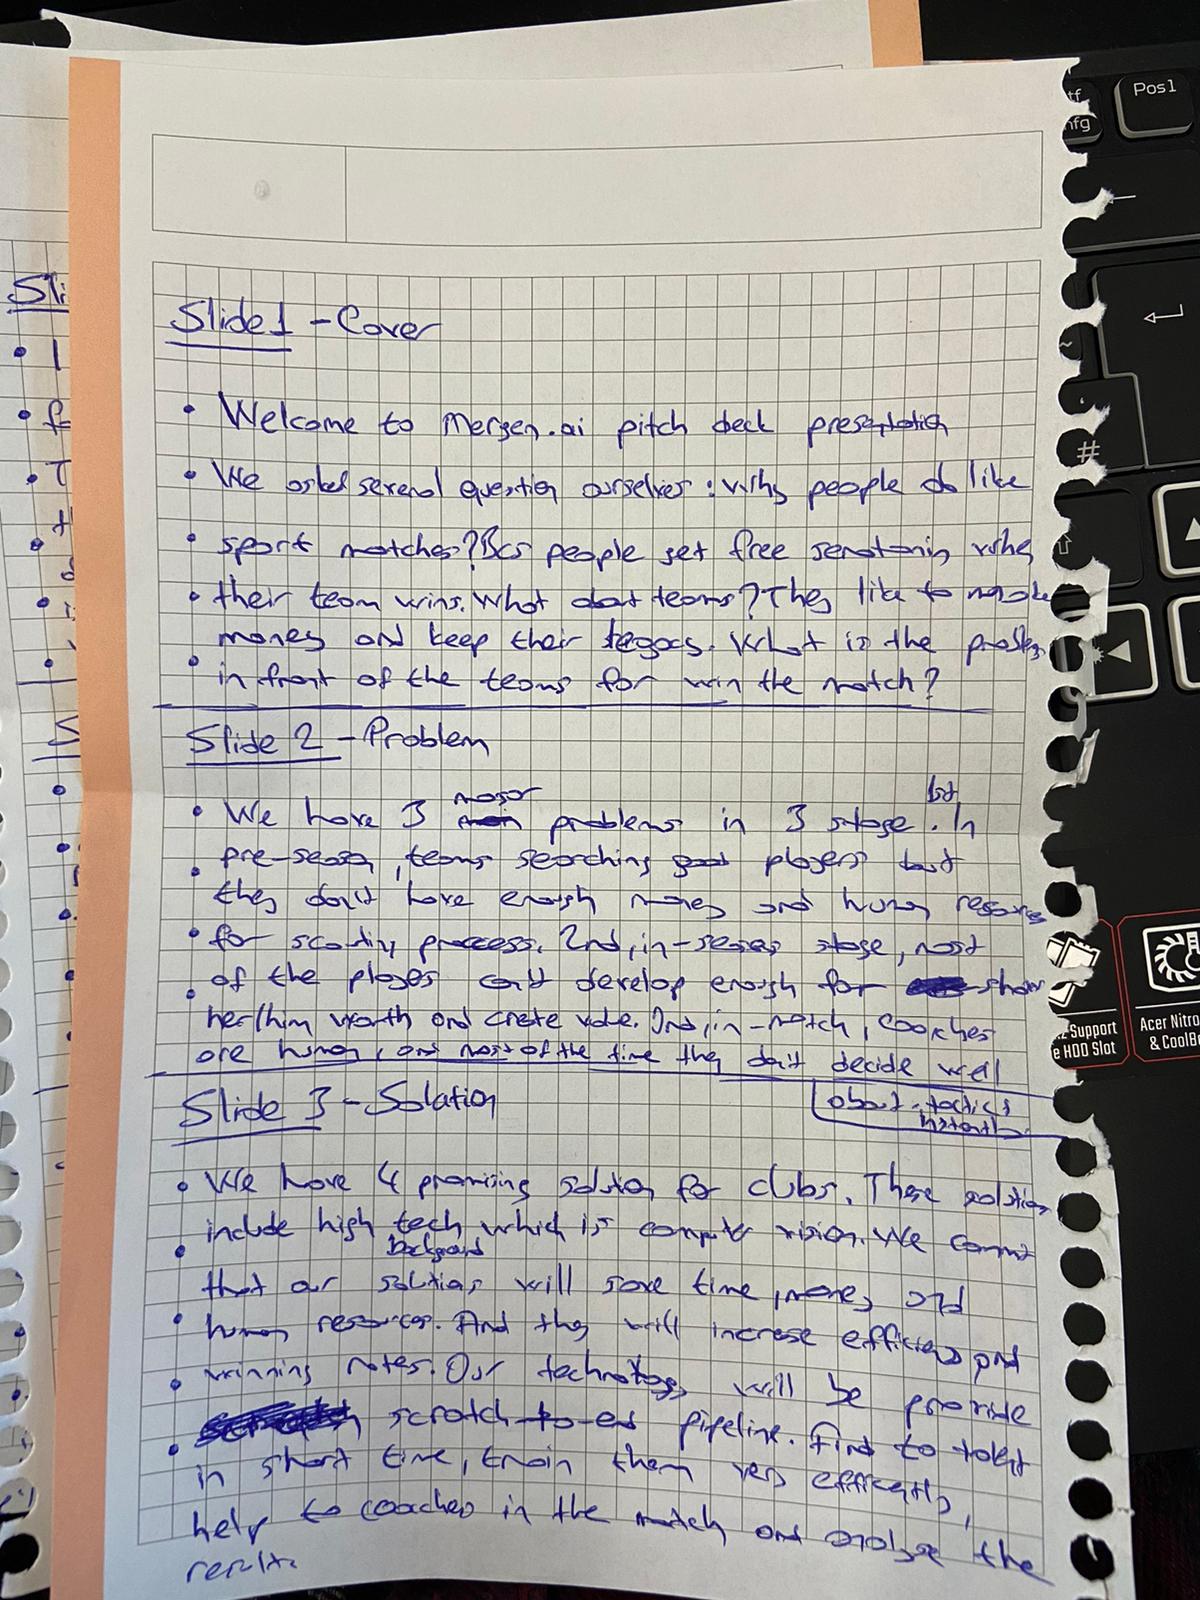 Slide 1 - Cover
• Welcome to Mergen.ai pitch deck presentation
• We asked several question ourselves: Why people do like
• sport matches? Bcs people get free serotonin when
• their team wins. What about teams? They like to make
money and keep their legacy. What is the problem
• in front of the teams for win the match?
Slide 2 - Problem
major
1st
• We have 3 problems in 3 stage. In
pre-season, teams searching good players but
• they don't have enough money and human resource
• for scouting process. 2nd, in-season stage, most
of the players can't develop enough for show
• her/him worth and create value. 3rd, in-match, coaches
are human, and most of the time they don't decide well
about tactics
instantly
Slide 3 - Solution
• We have 4 promising solution for clubs. These solution
include high tech which is computer vision. We commit
background
• that our solutions will save time, money and
• human resources. And they will increase efficiency and
winning rates. Our technology will be provide
• scratch-to-end pipeline. Find to talent
• in short time, train them very efficiently,
help to coaches in the match and analyse the
results.
Pos1
#
Support
HDD Slot
Acer Nitro
& CoolB